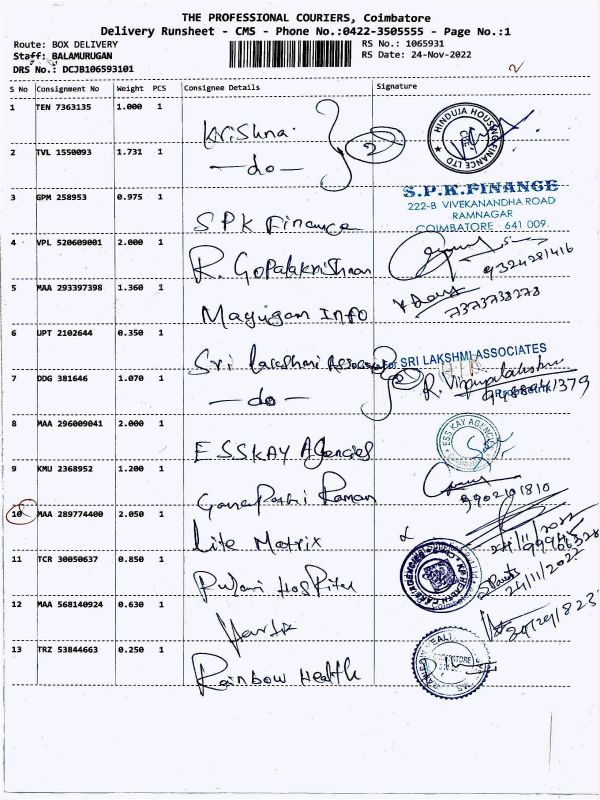 THE PROFESSIONAL COURIERS, Coimbatore
Delivery Runsheet - CMS - Phone No.:0422-3505555 - Page No.:1
Route: BOX DELIVERY
RS No.: 1065931
Staff: BALAMURUGAN
RS Date: 24-Nov-2022
DRS No.: DCJB106593101
2
S No Consignment No Weight PCS Consignee Details Signature
1 TEN 7363135 1.000 1 Krishna
HINDUJA HOUSING FINANCE LTD
2
2 TVL 1550093 1.731 1 —do—
3 GPM 258953 0.975 1 SPK Finance
S.P.K.FINANCE
222-B, VIVEKANANDHA ROAD
RAMNAGAR
COIMBATORE 641 009
4 VPL 520609001 2.000 1 R. Gopalakrishnan
9324281416
5 MAA 293397398 1.360 1 Magugam Info
7373738278
6 UPT 2102644 0.350 1 Sri Lakshmi Associates
For SRI LAKSHMI ASSOCIATES
7 DDG 381646 1.070 1 —do—
2
8 MAA 296009041 2.000 1 ESSKAY Agencies
ESS KAY AGENCIES
9 KMU 2368952 1.200 1 Ganapathi Raman
9902101810
10 MAA 289774400 2.050 1 Lite Matrix
24/11/2022
11 TCR 30050637 0.850 1
24/11/2022
12 MAA 568140924 0.630 1
13 TRZ 53844663 0.250 1 Rainbow Health